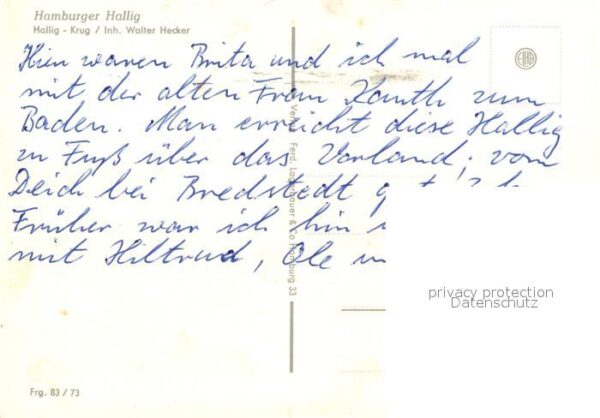 Hamburger Hallig
Hallig - Krug / Inh. Walter Hecker
Hier waren Brita und ich mal
mit der alten Frau Kanth zum
Baden. Man erreicht diese Hallig
zu Fuß über das Vorland, vom
Deich bei Bredstedt
Früher war ich hin
mit Hiltrud, Ole
Ferd. Lagerbauer & Co Hamburg 33
privacy protection
Datenschutz
Frg. 83 / 73